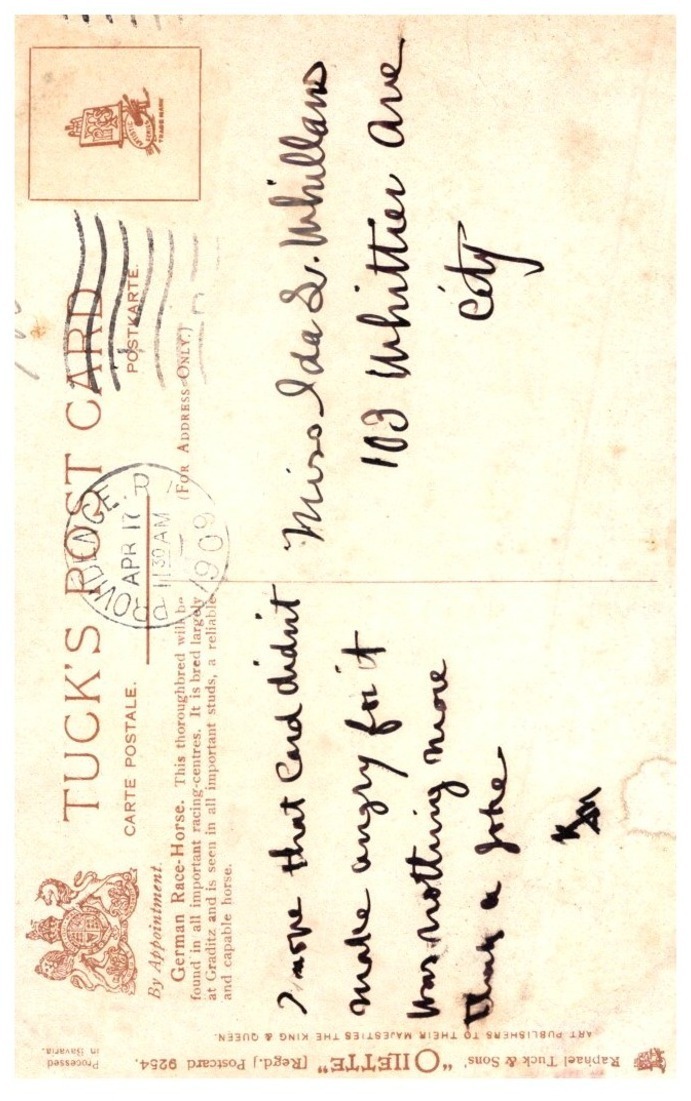 TUCK'S POST CARD
CARTE POSTALE.
POSTKARTE.
(FOR ADDRESS ONLY.)
By Appointment.
German Race-Horse. This thoroughbred will be
found in all important racing-centres. It is bred largely
at Graditz and is seen in all important studs, a reliable
and capable horse.
PROVIDENCE, R
APR 17
11 30 AM
1909
TRADE MARK
I hope that Card didn't
make angry for it
was nothing more
than a joke
Miss Ida L. Whillans
103 Whittier Ave
City
Raphael Tuck & Sons' "OILETTE" [Regd.] Postcard 9254.
ART PUBLISHERS TO THEIR MAJESTIES THE KING & QUEEN.
Processed
in Bavaria.